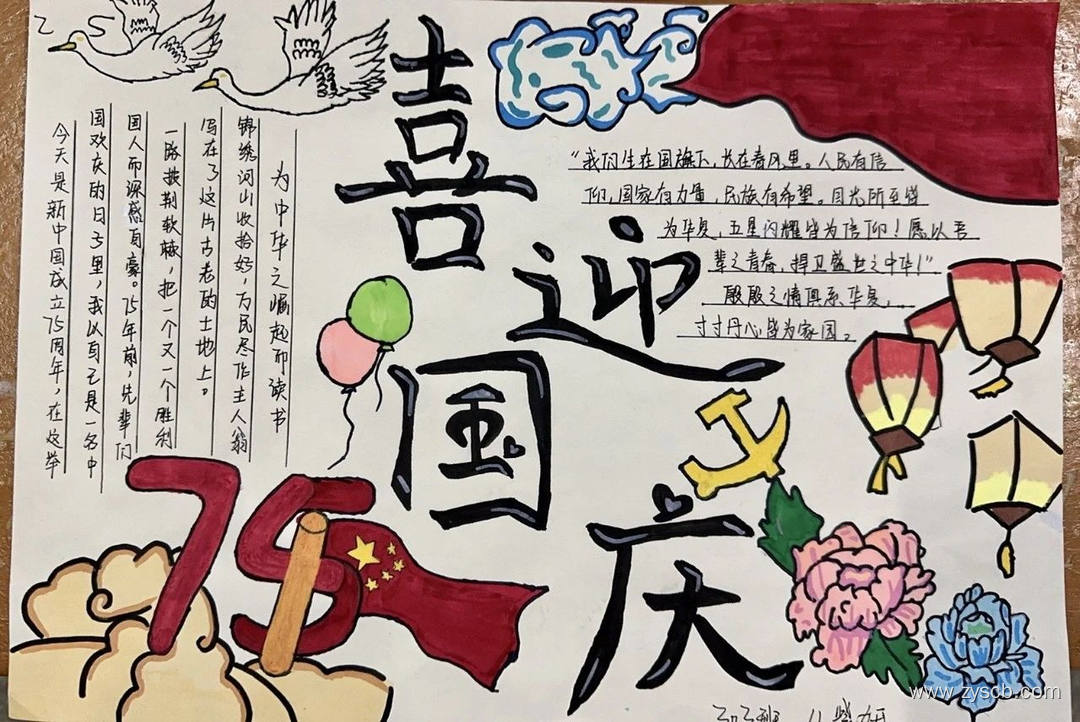 喜迎国庆
今天是新中国成立75周年，在这举
国欢庆的日子里，我以自己是一名中
国人而深感自豪。75年前，先辈们
一路披荆斩棘，把一个又一个胜利
写在了这片古老的土地上。
锦绣河山收拾好，为民尽作主人翁
为中华之崛起而读书
“我们生在国旗下，长在春风里。人民有信
仰，国家有力量，民族有希望。目光所至皆
为华夏，五星闪耀皆为信仰！愿以吾
辈之青春，捍卫盛世之中华！”
殷殷之情俱系华夏，
寸寸丹心皆为家国。
75
www.zyscb.com